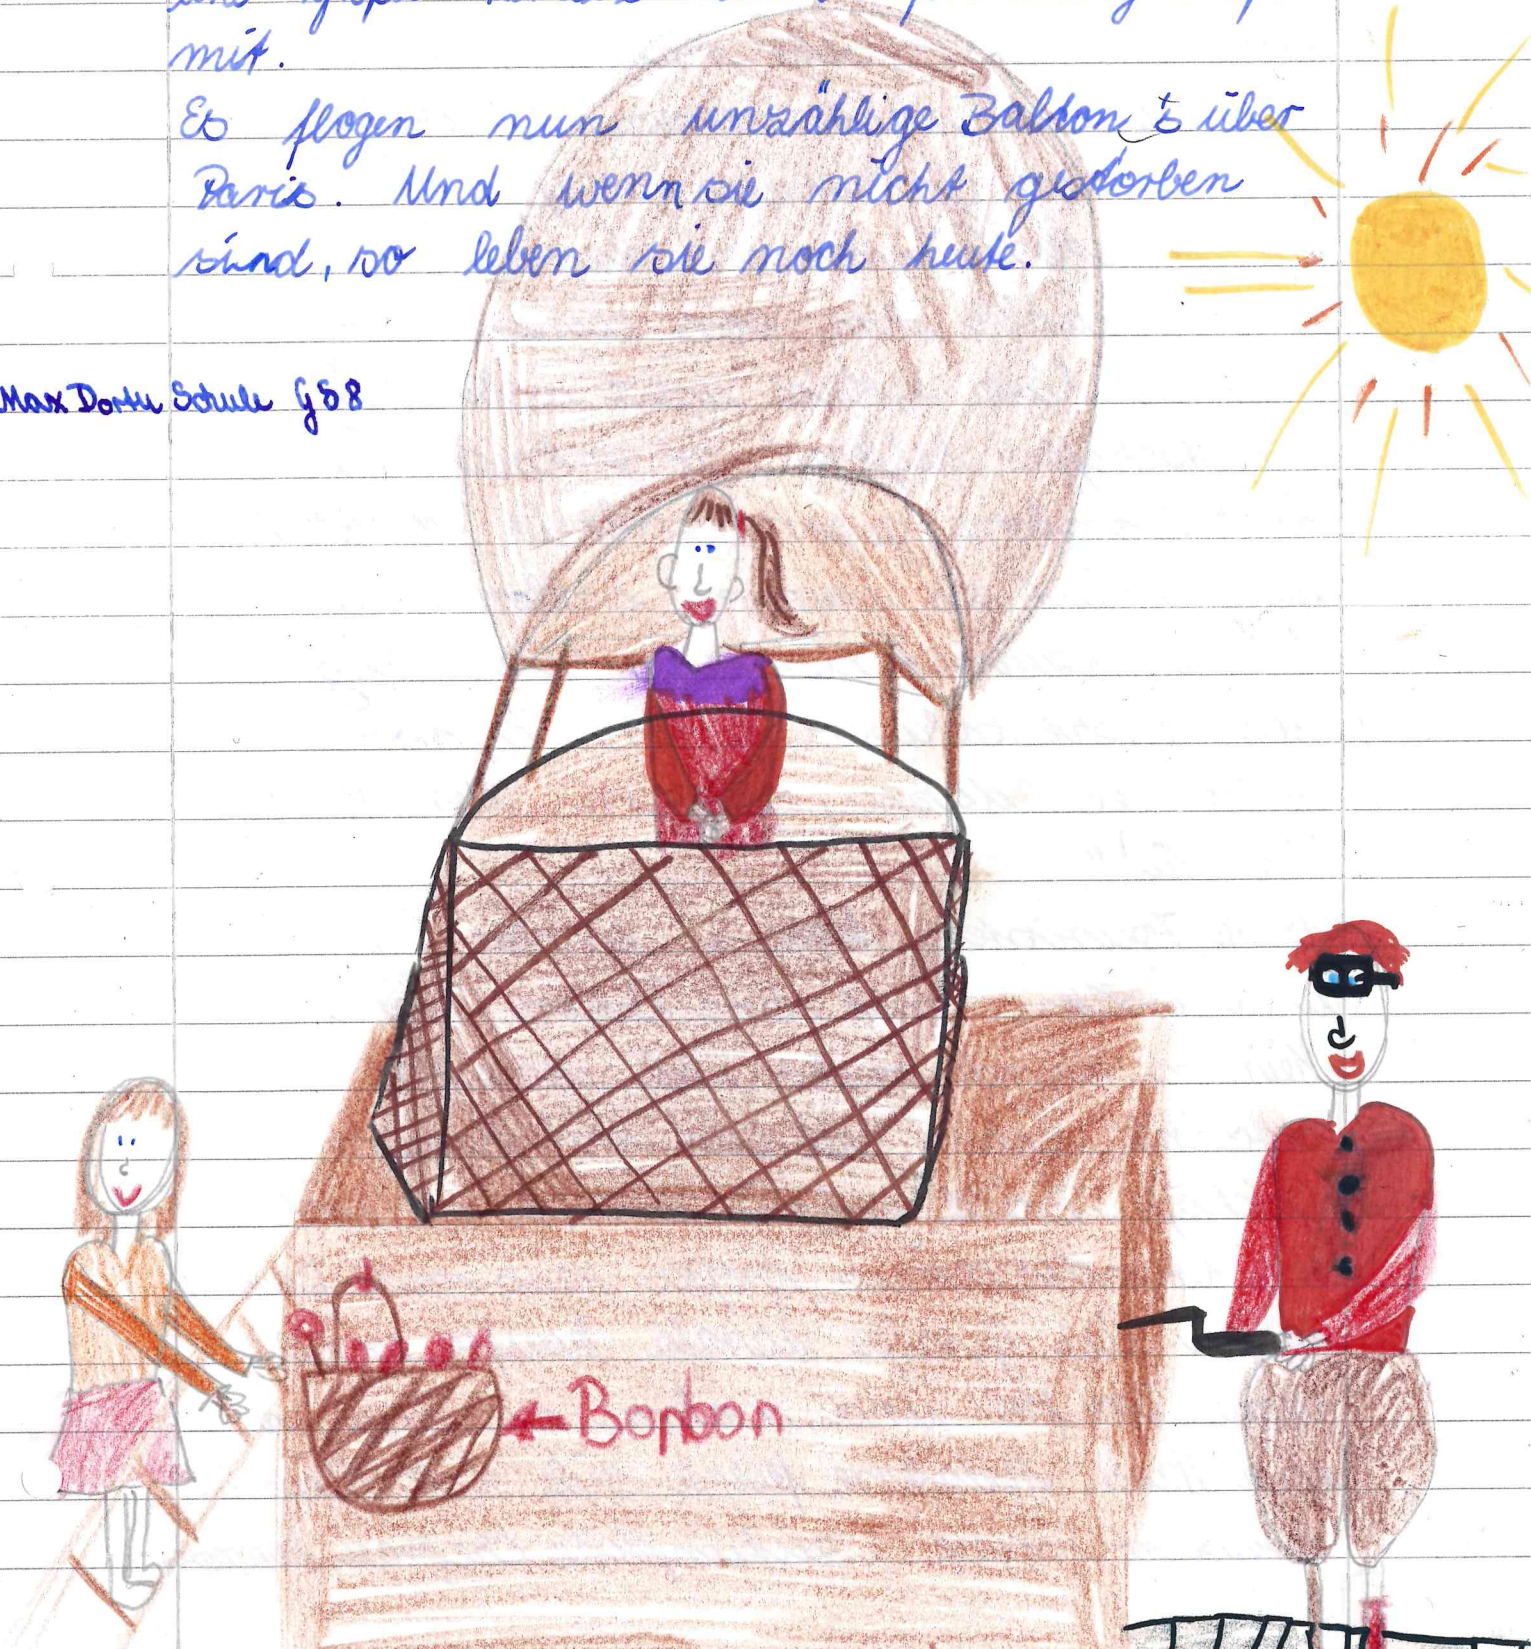 mit.
Es flogen nun unzählige Ballon's über
Paris. Und wenn sie nicht gestorben
sind, so leben sie noch heute.
Max Dortu Schule GS8
Bonbon